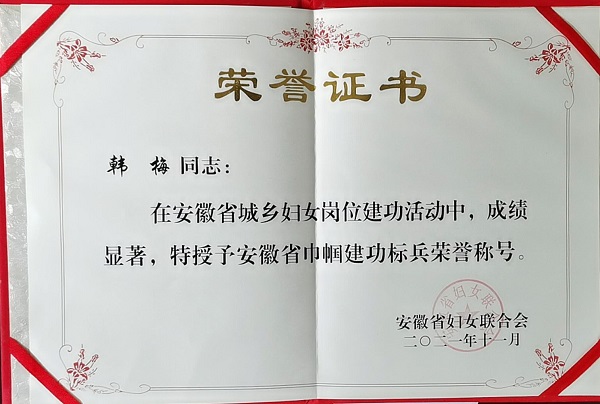 荣誉证书
韩 梅 同志：
在安徽省城乡妇女岗位建功活动中，成绩
显著，特授予安徽省巾帼建功标兵荣誉称号。
省妇女联
安徽省妇女联合会
二〇二一年十一月